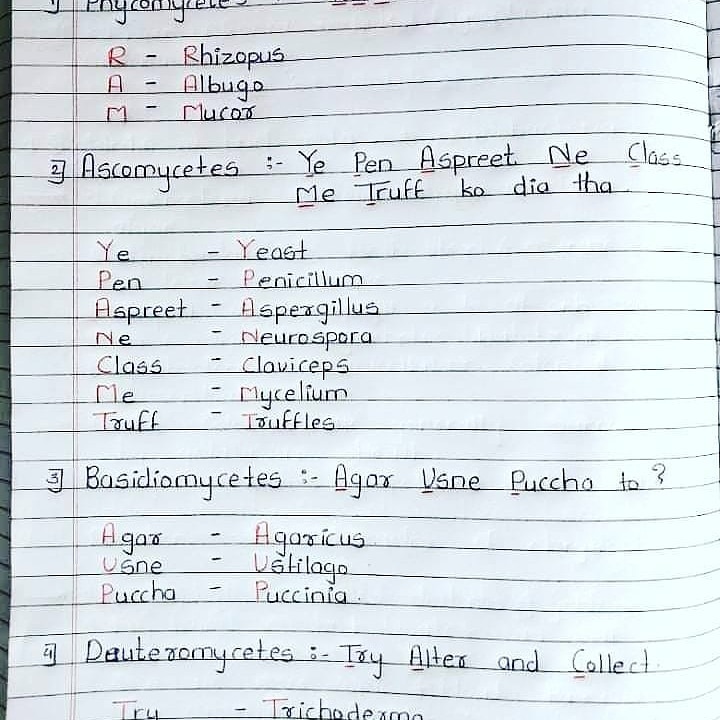 1) Phycomycetes
R - Rhizopus
A - Albugo
M - Mucor
2) Ascomycetes :- Ye Pen Aspreet Ne Class
Me Truff ko dia tha
Ye - Yeast
Pen - Penicillum
Aspreet - Aspergillus
Ne - Neurospora
Class - Claviceps
Me - Mycelium
Truff - Truffles
3) Basidiomycetes :- Agar Usne Puccha to ?
Agar - Agaricus
Usne - Ustilago
Puccha - Puccinia.
4) Deuteromycetes :- Try Alter and Collect.
Try - Trichoderma